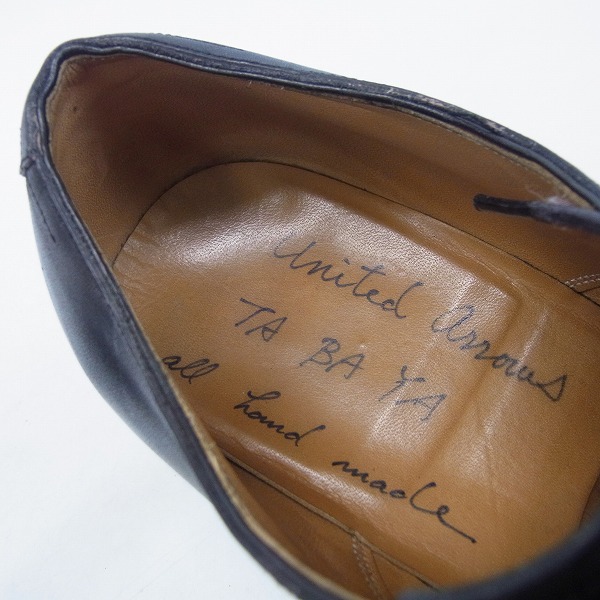 United arrows
TA BA YA
all hand made